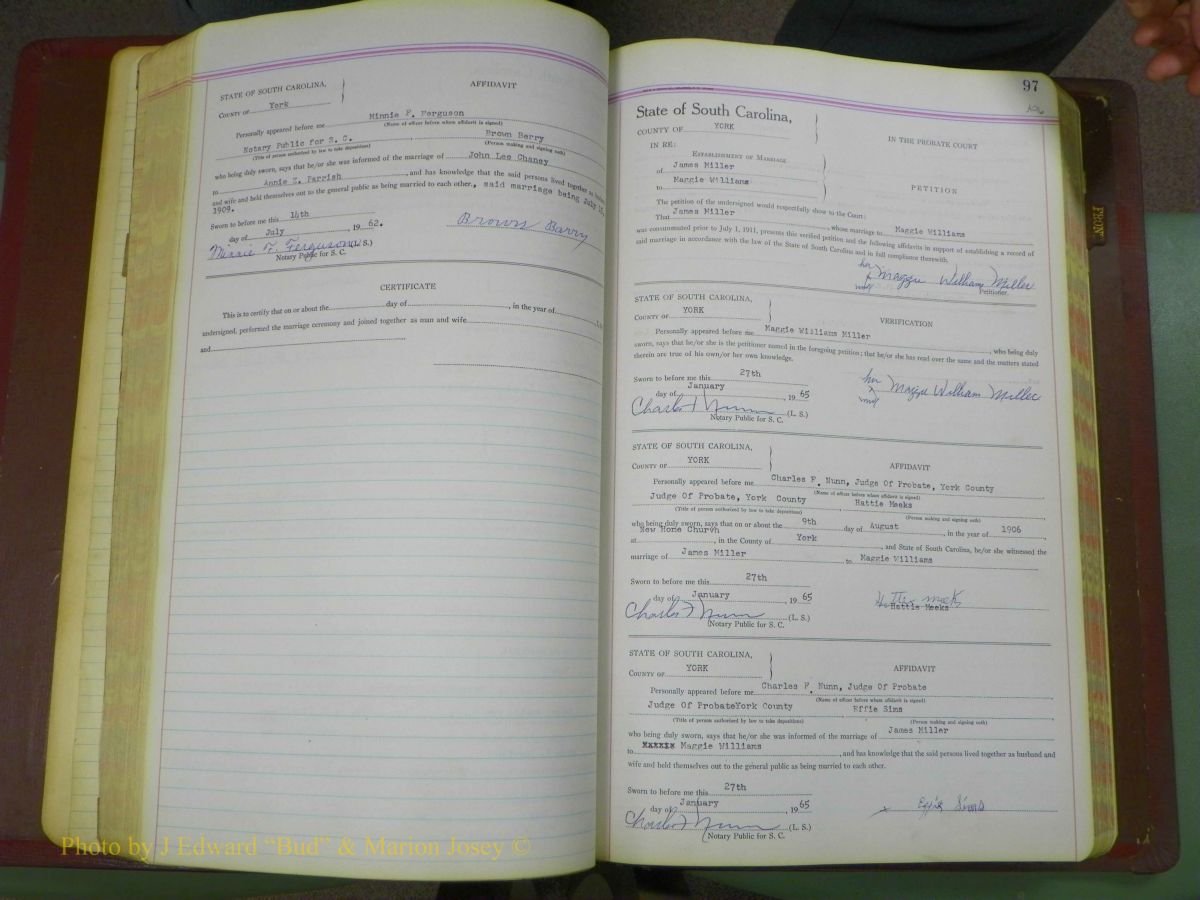 STATE OF SOUTH CAROLINA,
AFFIDAVIT
COUNTY OF York
Personally appeared before me Minnie F. Ferguson
(Name of officer before whom affidavit is signed)
Notary Public for S. C. Brown Berry
(Title of person authorized by law to take depositions) (Person making and signing oath)
who being duly sworn, says that he/she was informed of the marriage of John Lee Chaney
to Annie Parrish, and has knowledge that the said persons lived together as
and wife and held themselves out to the general public as being married to each other., said marriage being July
1909.
Sworn to before me this 14th
day of July 1962.
Brown Barry
Minnie F. Ferguson (L. S.)
Notary Public for S. C.
CERTIFICATE
This is to certify that on or about the day of , in the year of
undersigned, performed the marriage ceremony and joined together as man and wife
and
97
State of South Carolina,
COUNTY OF YORK
IN THE PROBATE COURT
IN RE:
ESTABLISHMENT OF MARRIAGE
of James Miller
to Maggie Williams
PETITION
The petition of the undersigned would respectfully show to the Court:
That James Miller, whose marriage to Maggie Williams
was consummated prior to July 1, 1911, presents this verified petition and the following affidavits in support of establishing a record of
said marriage in accordance with the law of the State of South Carolina and in full compliance therewith.
her
x Maggie William Miller
mark
Petitioner.
STATE OF SOUTH CAROLINA,
COUNTY OF YORK
VERIFICATION
Personally appeared before me Maggie Williams Miller, who being duly
sworn, says that he/she is the petitioner named in the foregoing petition; that he/she has read over the same and the matters stated
therein are true of his own/or her own knowledge.
Sworn to before me this 27th
day of January, 1965
her
x Maggie William Miller
mark
Charles F Nunn (L. S.)
Notary Public for S. C.
STATE OF SOUTH CAROLINA,
COUNTY OF YORK
AFFIDAVIT
Personally appeared before me Charles F. Nunn, Judge Of Probate, York County
(Name of officer before whom affidavit is signed)
Judge Of Probate, York County Hattie Meeks
(Title of person authorized by law to take depositions) (Person making and signing oath)
who being duly sworn, says that on or about the 9th day of August, in the year of 1906
at New Home Church, in the County of York, and State of South Carolina, he/she witnessed the
marriage of James Miller to Maggie Williams
Sworn to before me this 27th
day of January, 1965
Hattie Meeks
Hattie Meeks
Charles F Nunn (L. S.)
Notary Public for S. C.
STATE OF SOUTH CAROLINA,
COUNTY OF YORK
AFFIDAVIT
Personally appeared before me Charles F. Nunn, Judge Of Probate
(Name of officer before whom affidavit is signed)
Judge Of ProbateYork County Effie Sims
(Title of person authorized by law to take depositions) (Person making and signing oath)
who being duly sworn, says that he/she was informed of the marriage of James Miller
to Maggie Williams, and has knowledge that the said persons lived together as husband and
wife and held themselves out to the general public as being married to each other.
Sworn to before me this 27th
day of January 1965
x Effie Sims
Charles F Nunn (L. S.)
Notary Public for S. C.
Photo by J Edward "Bud" & Marion Josey ©